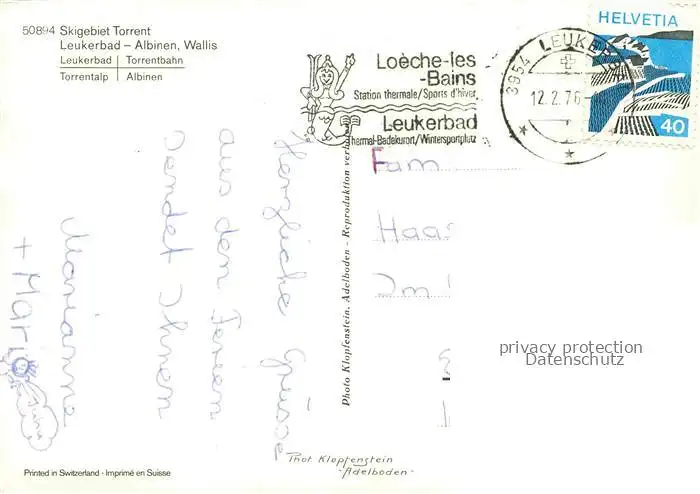 50894 Skigebiet Torrent
Leukerbad – Albinen, Wallis
Leukerbad Torrentbahn
Torrentalp Albinen
Loèche-les
-Bains
Station thermale/Sports d'hiver
Leukerbad
Thermal-Badekurort/Wintersportplatz
3954 LEUKERB
12.2.76
HELVETIA
40
Herzliche Grüsse
aus den Ferien
sendet Ihnen
Marianne
+ Mario
Juhu
Photo Klopfenstein, Adelboden - Reproduktion verb
Fam
Haas
Im
privacy protection
Datenschutz
Phot Klopfenstein
- Adelboden -
Printed in Switzerland - Imprimé en Suisse